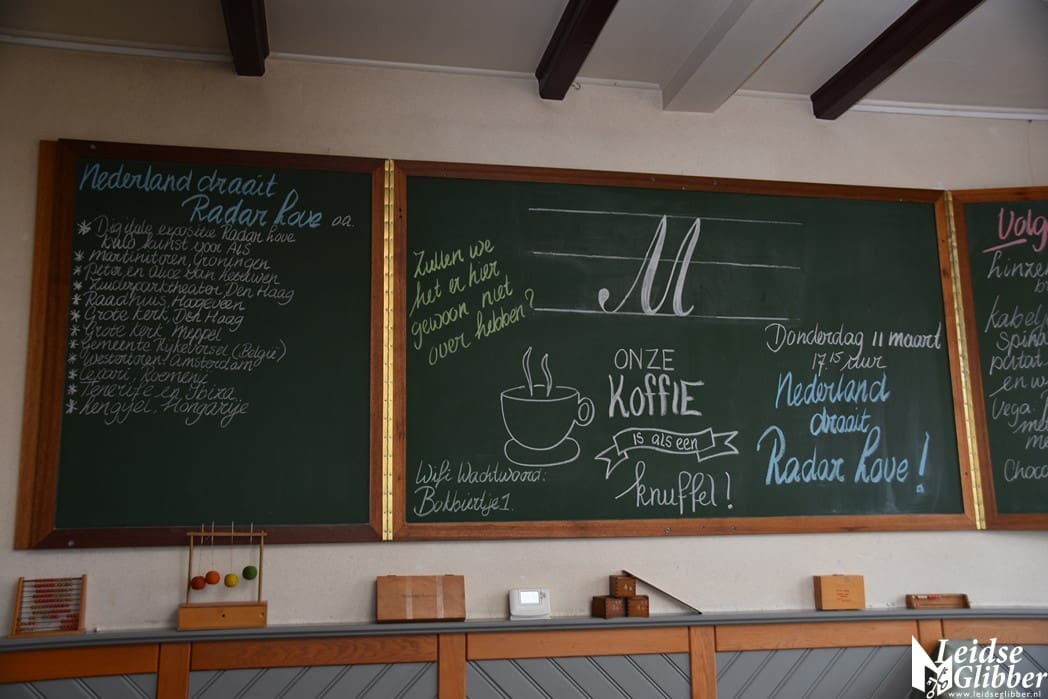 Nederland draait
Radar Love o.a.
* Digitale expositie Radar Love
kald kunst voor ALS
* Martinitoren, Groningen
* Peter en Alice van Leeuwen
* Zuiderparktheater, Den Haag
* Raadhuis, Hoogeveen
* Grote kerk, Den Haag
* Grote kerk, Meppel
* Gemeente Rijkevorsel (België)
* Westertoren Amsterdam
* Lepari, Roemenj
* Tenerife en Ibiza
* Kengyel, Hongarije
Zullen we
het er hier
gewoon niet
over hebben?
M
ONZE
KOFFIE
is als een
knuffel!
Wifi Wachtwoord:
Bokbiertje1.
Donderdag 11 maart
17.15 uur
Nederland
draait
Radar Love!
Volg
Linzen
br
kabelj
Spina
pata
en w
Vega.
met
me
Choco
Leidse
Glibber
www.leidseglibber.nl